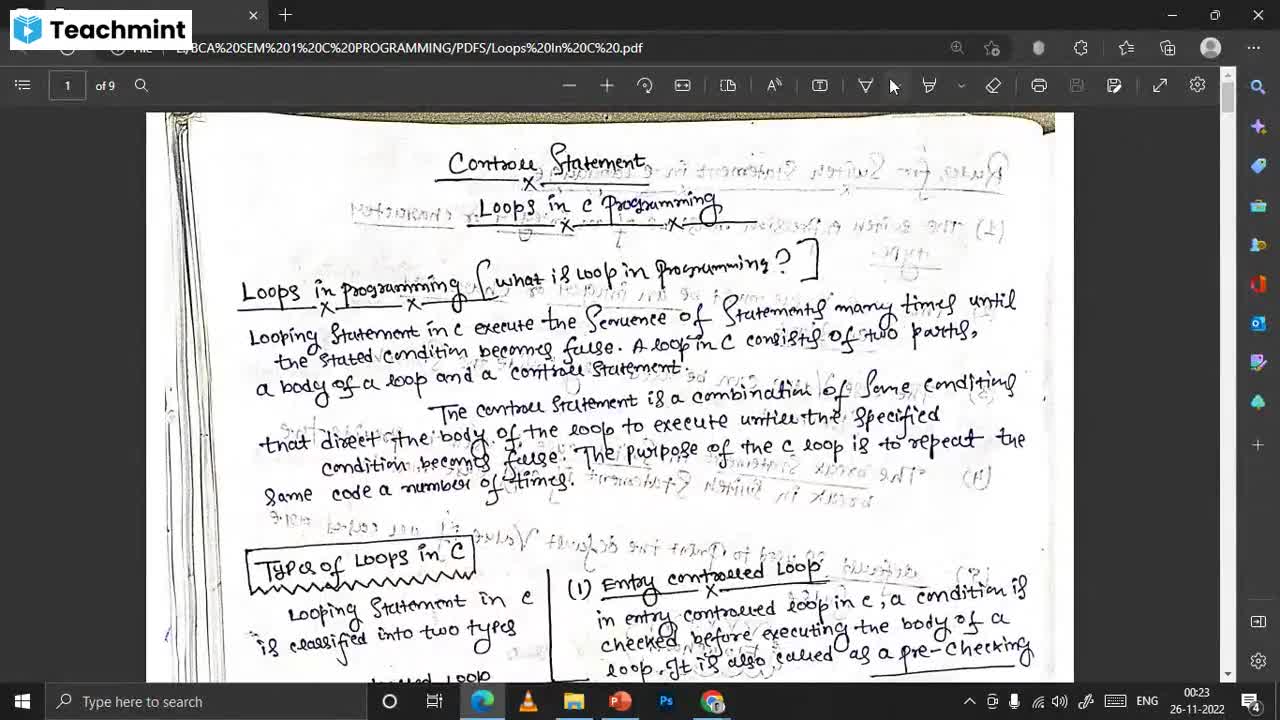 Teachmint
BCA%20SEM%201%20C%20PROGRAMMING/PDFS/Loops%20In%20C%20.pdf
1 of 9
Controll Statement
Loops in C Programming
Loops in programming [what is loop in programming?]
Looping Statement in C execute the Sequence of Statements many times until
the stated condition becomes false. A loop in C consists of two parts,
a body of a loop and a controll statement.
The controll statement is a combination of some conditions
that direct the body of the loop to execute untill the specified
condition becomes false. The purpose of the C loop is to repeat the
same code a number of times.
Types of Loops in C
Looping Statement in C
is classified into two types
(1) Entry controlled Loop
in entry controlled loop in c, a condition is
checked before executing the body of a
loop. It is also called as a pre-checking
Type here to search
ENG
00:23
26-11-2022
4